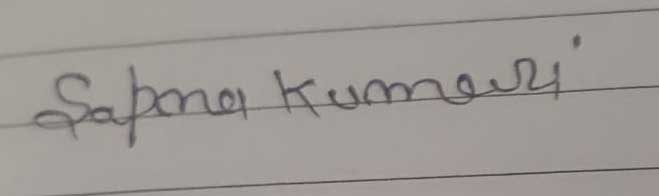 Sapna Kumari